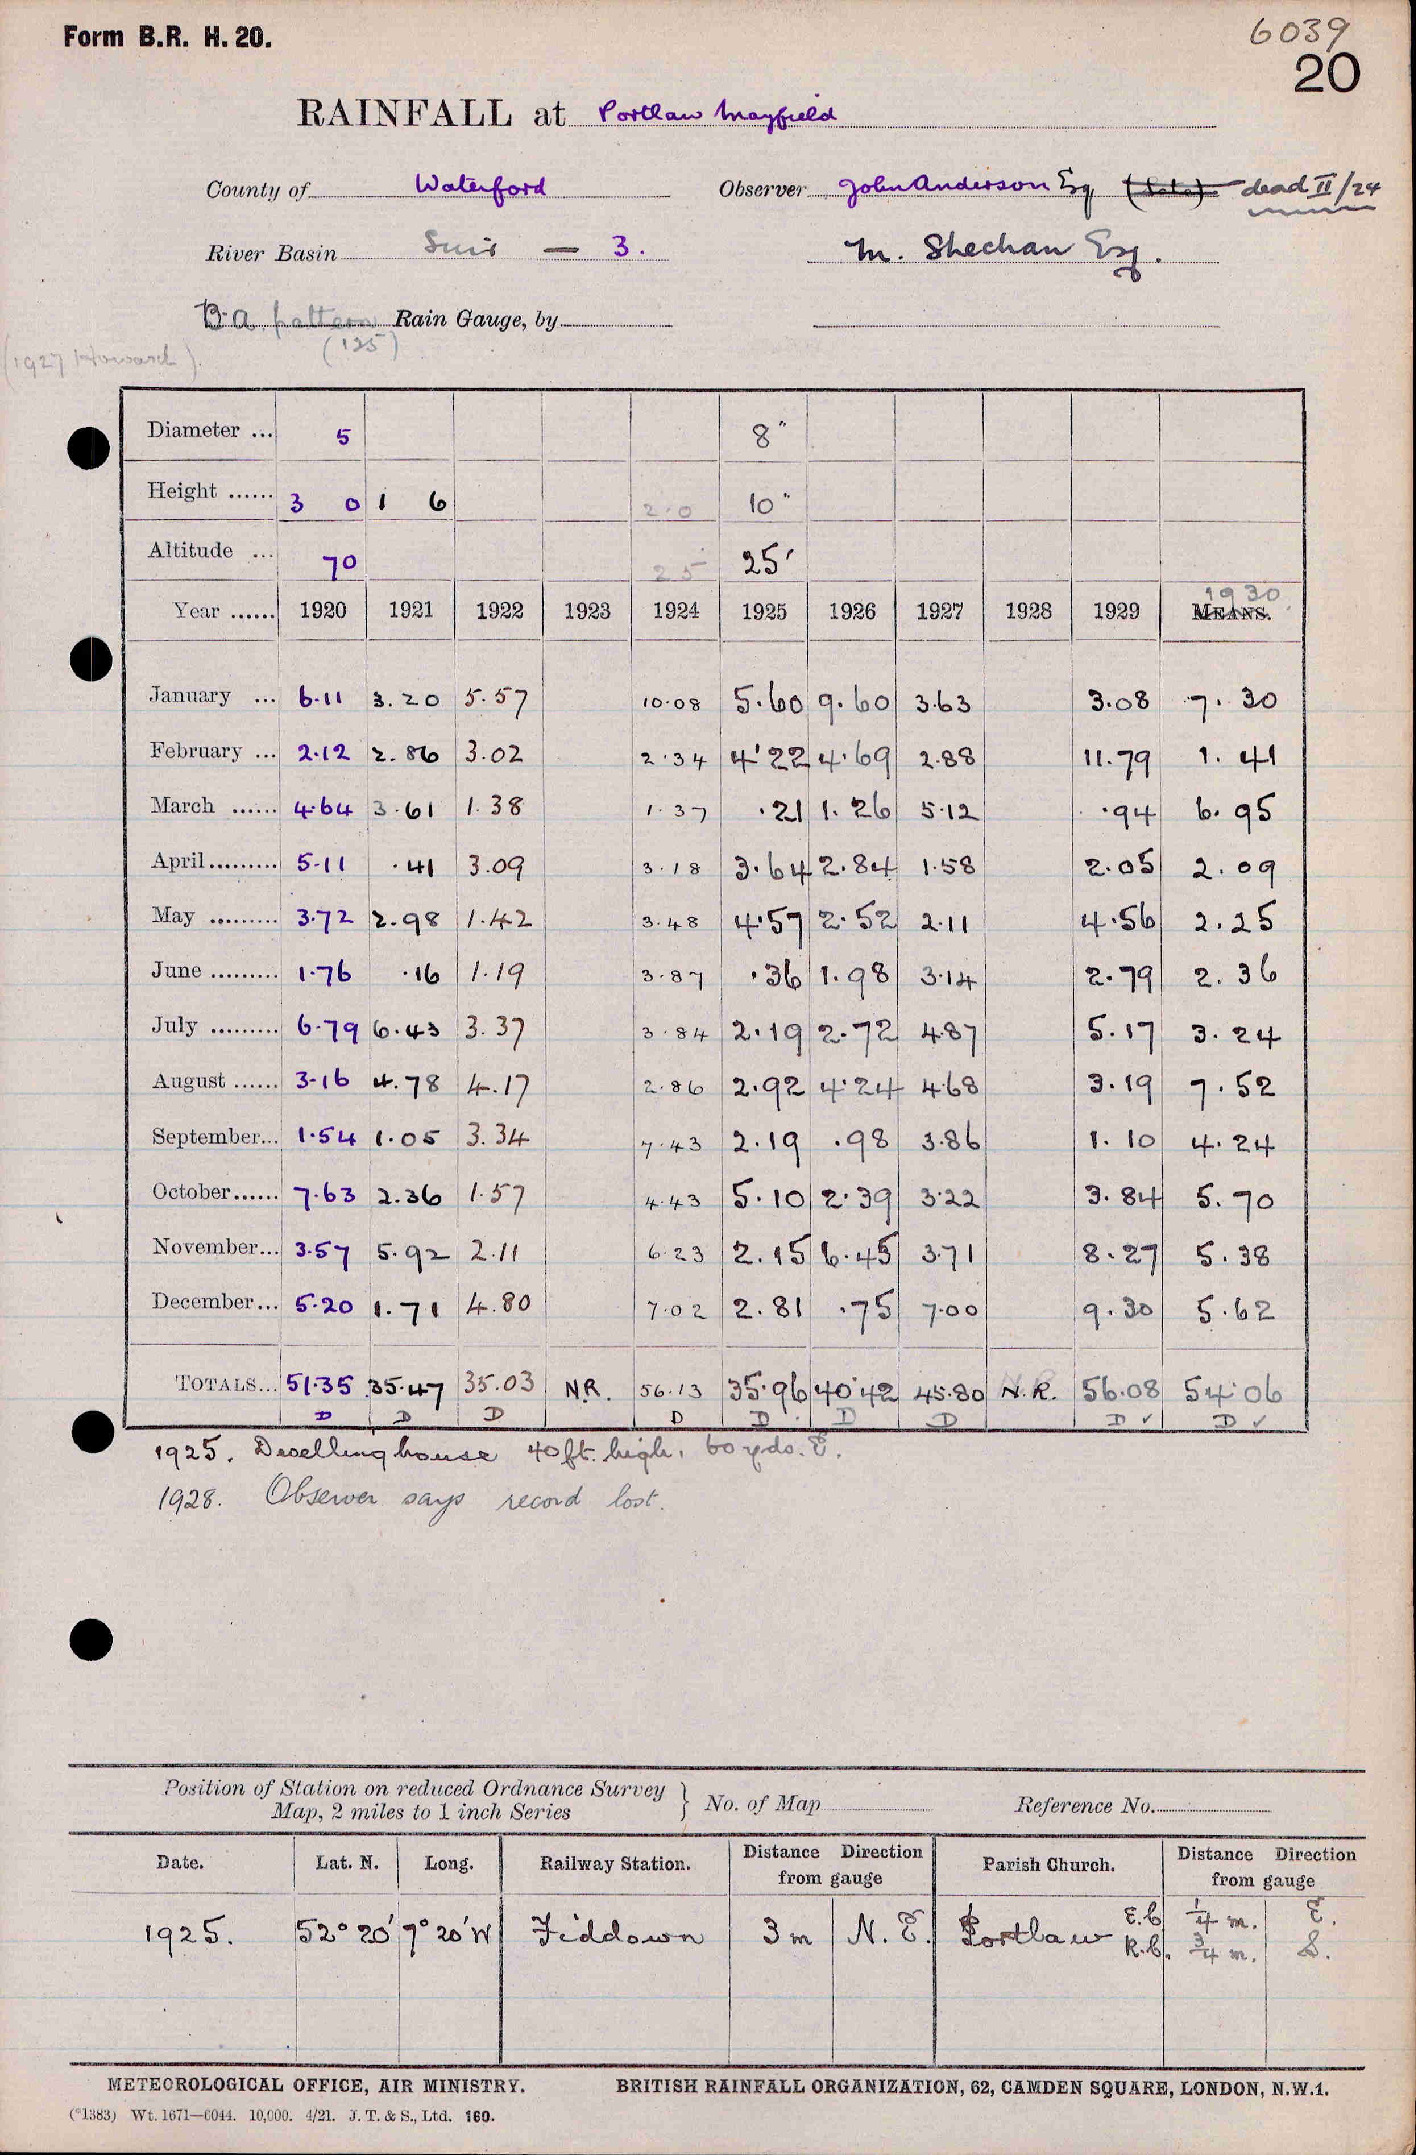 Form B.R. H. 20.
6039
20
RAINFALL at Portlaw Mayfield
County of Waterford Observer John Anderson Esq dead II/24
River Basin Suir — 3. M. Sheehan Esq.
B.a pattern Rain Gauge, by
(1927 Howard) (125)
Diameter ... 5 8"
Height ...... 3 0 1 6 2.0 10"
Altitude ... 70 25 25'
Year ...... 1920 1921 1922 1923 1924 1925 1926 1927 1928 1929 MEANS. 1930
January ... 6.11 3.20 5.57 10.08 5.60 9.60 3.63 3.08 7.30
February ... 2.12 2.86 3.02 2.34 4.22 4.69 2.88 11.79 1.41
March ...... 4.64 3.61 1.38 1.37 .21 1.26 5.12 .94 6.95
April......... 5.11 .41 3.09 3.18 3.64 2.84 1.58 2.05 2.09
May ......... 3.72 2.98 1.42 3.48 4.57 2.52 2.11 4.56 2.25
June ......... 1.76 .16 1.19 3.87 .36 1.98 3.14 2.79 2.36
July ......... 6.79 6.43 3.37 3.84 2.19 2.72 4.87 5.17 3.24
August ...... 3.16 4.78 4.17 2.86 2.92 4.24 4.68 3.19 7.52
September... 1.54 1.05 3.34 7.43 2.19 .98 3.86 1.10 4.24
October...... 7.63 2.36 1.57 4.43 5.10 2.39 3.22 3.84 5.70
November... 3.57 5.92 2.11 6.23 2.15 6.45 3.71 8.27 5.38
December... 5.20 1.71 4.80 7.02 2.81 .75 7.00 9.30 5.62
TOTALS... 51.35 35.47 35.03 N.R. 56.13 35.96 40.42 45.80 N.R. 56.08 54.06
D D D D D D D D ✓ D ✓
1925. Dwelling house 40 ft. high, 60 yds. E.
1928. Observer says record lost.
Position of Station on reduced Ordnance Survey
Map, 2 miles to 1 inch Series } No. of Map Reference No.
Date. Lat. N. Long. Railway Station. Distance Direction from gauge Parish Church. Distance Direction from gauge
1925. 52° 20' 7° 20' W Fiddown 3 m N. E. Portlaw E.C. 1/4 m. E.
R.C. 3/4 m. S.
METEOROLOGICAL OFFICE, AIR MINISTRY. BRITISH RAINFALL ORGANIZATION, 62, CAMDEN SQUARE, LONDON, N.W.1.
(*1383) Wt. 1671—6044. 10,000. 4/21. J. T. & S., Ltd. 160.